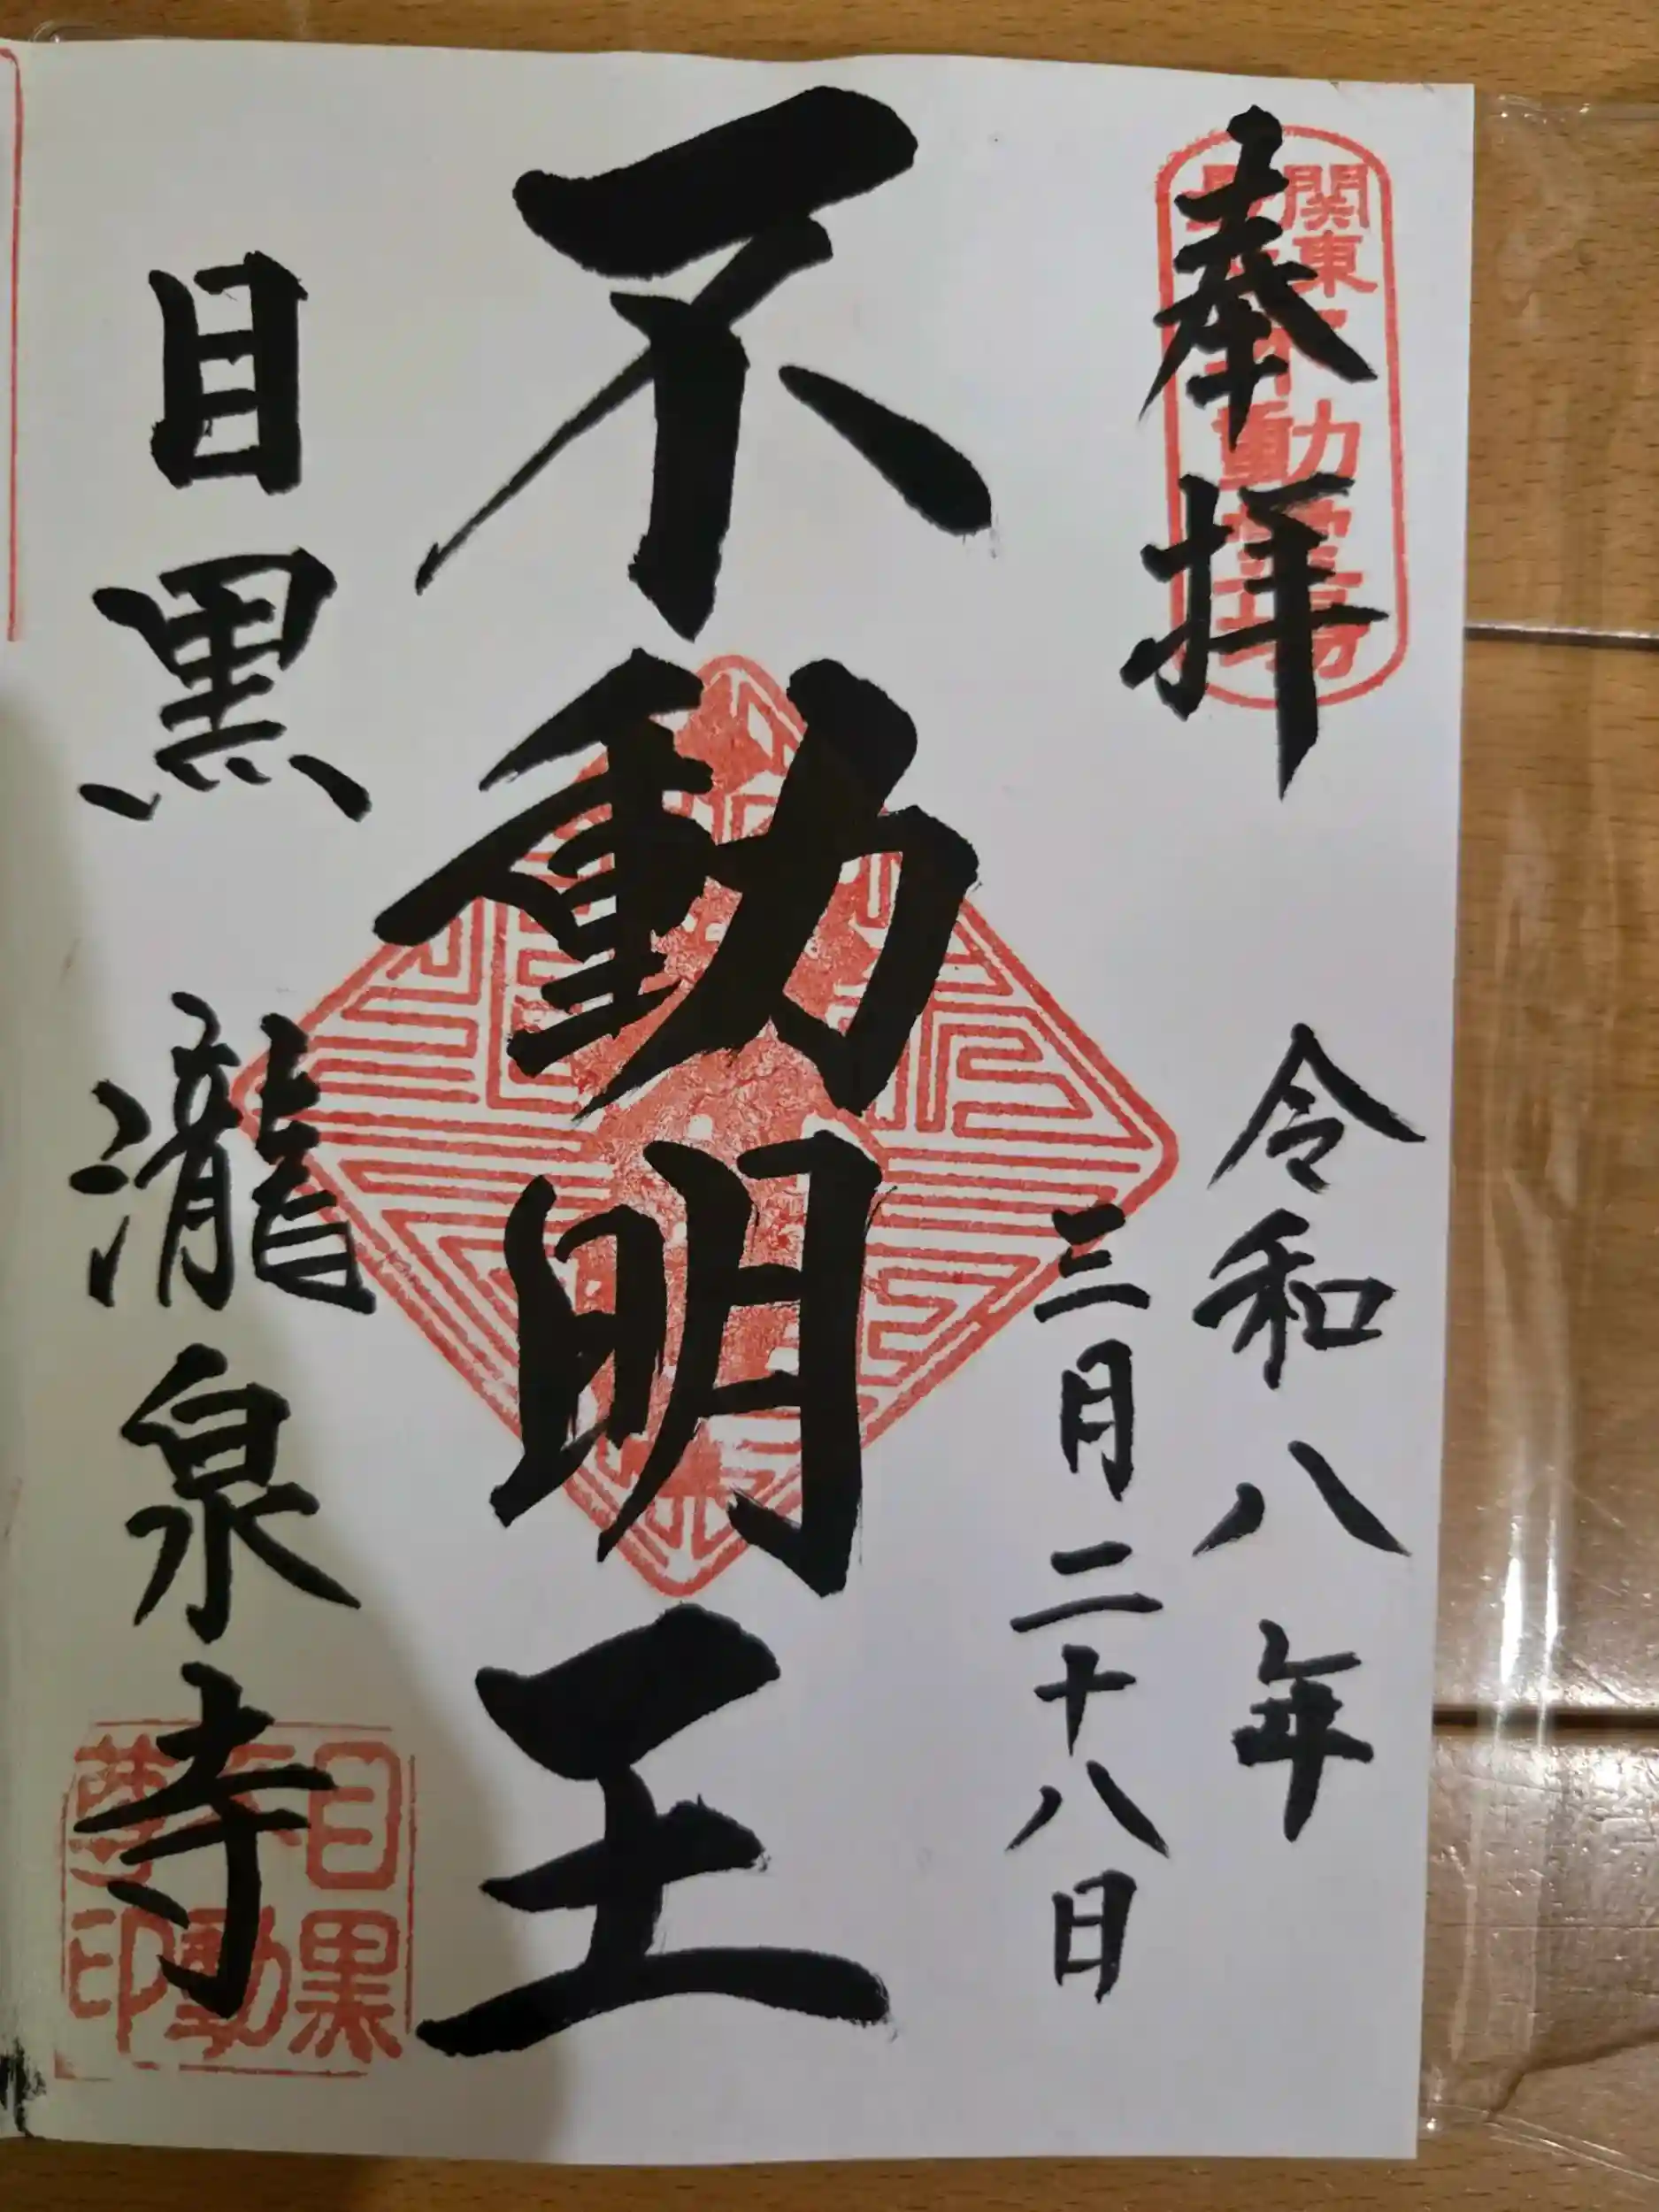 奉拝
関東
不動霊場
令和八年
三月二十八日
不動明王
目黒
瀧泉寺
目黒
不動
尊印